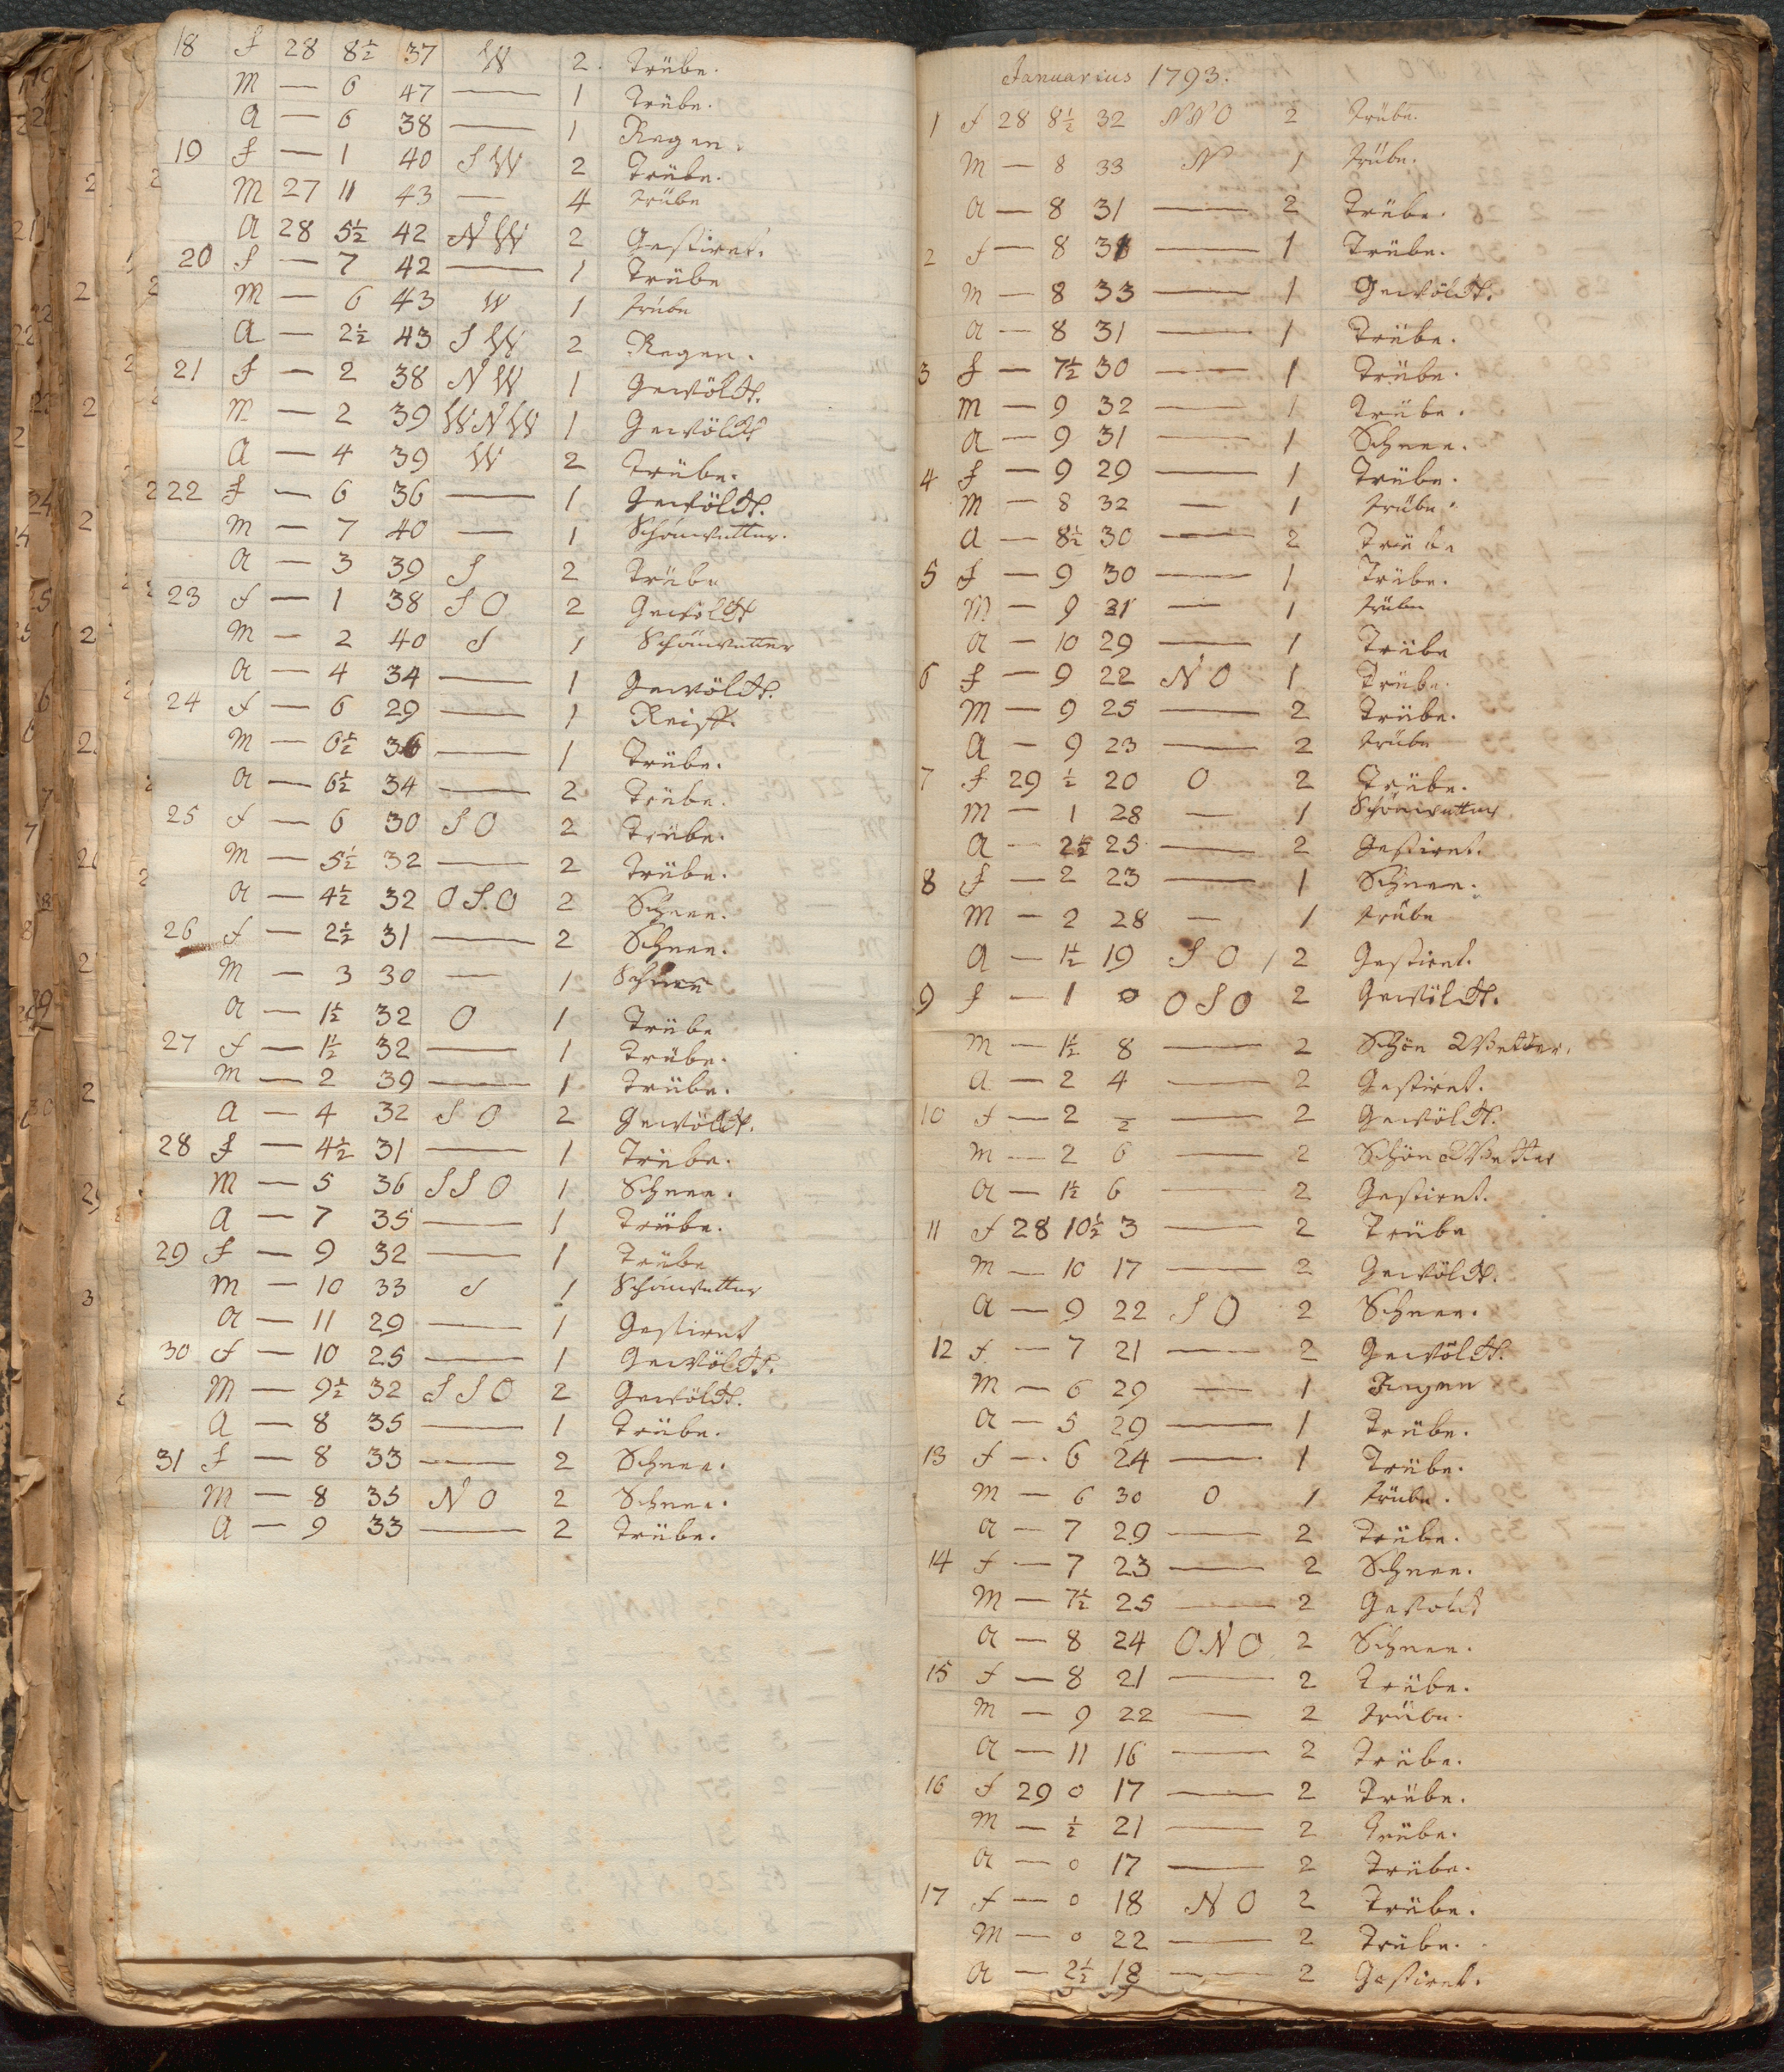 18 f 28 8½ 37 W 2. Trübe.
M — 6 47 — 1 Trübe.
A — 6 38 — 1 Regen.
19 f — 1 40 S W 2 Trübe.
M 27 11 43 — 4 trübe
A 28 5½ 42 N W 2 Gestirnt.
20 f — 7 42 — 1 Trübe
M — 6 43 W 1 trübe
A — 2½ 43 S W 2 Regen.
21 f — 2 38 N W 1 Gewölckt.
M — 2 39 W N W 1 Gewölckt
A — 4 39 W 2 Trübe.
22 f — 6 36 — 1 Gewölckt.
M — 7 40 — 1 Schönwetter.
A — 3 39 S 2 Trübe
23 f — 1 38 S O 2 Gewölckt
M — 2 40 S 1 Schönwetter
A — 4 34 — 1 Gewölckt.
24 f — 6 29 — 1 Reiff.
M — 6½ 36 — 1 Trübe.
A — 6½ 34 — 2 Trübe.
25 f — 6 30 S O 2 Trübe.
M — 5½ 32 — 2 Trübe.
A — 4½ 32 O S.O 2 Schnee.
26 f — 2½ 31 — 2 Schnee.
M — 3 30 — 1 Schnee
A — 1½ 32 O 1 Trübe
27 f — 1½ 32 — 1 Trübe.
M — 2 39 — 1 Trübe.
A — 4 32 S O 2 Gewölckt.
28 f — 4½ 31 — 1 Trübe.
M — 5 36 S S O 1 Schnee.
A — 7 35 — 1 Trübe.
29 f — 9 32 — 1 Trübe
M — 10 33 S 1 Schönwetter
A — 11 29 — 1 Gestirnt
30 f — 10 25 — 1 Gewölckt.
M — 9½ 32 S S O 2 Gewölckt.
A — 8 35 — 1 Trübe.
31 f — 8 33 — 2 Schnee.
M — 8 35 N O 2 Schnee.
A — 9 33 — 2 Trübe.
Januarius 1793.
1 f 28 8½ 32 N N O 2 Trübe.
M — 8 33 N 1 trübe.
A — 8 31 — 2 Trübe.
2 f — 8 31 — 1 Trübe.
M — 8 33 — 1 Gewölckt.
A — 8 31 — 1 Trübe.
3 f — 7½ 30 — 1 Trübe.
M — 9 32 — 1 Trübe.
A — 9 31 — 1 Schnee.
4 f — 9 29 — 1 Trübe.
M — 8 32 — 1 trübe.
A — 8½ 30 — 2 Trübe
5 f — 9 30 — 1 Trübe.
M — 9 31 — 1 trübe
A — 10 29 — 1 Trübe
6 f — 9 22 N O 1 Trübe.
M — 9 25 — 2 Trübe.
A — 9 23 — 2 trübe
7 f 29 ½ 20 O 2 Trübe.
M — 1 28 — 1 Schönwetter
A — 2½ 25 — 2 Gestirnt.
8 f — 2 23 — 1 Schnee.
M — 2 28 — 1 trübe
A — 1½ 19 S O 2 Gestirnt.
9 f — 1 0 O S O 2 Gewölckt.
M — 1½ 8 — 2 Schön Wetter.
A — 2 4 — 2 Gestirnt.
10 f — 2 ½ — 2 Gewölckt.
M — 2 6 — 2 Schön Wetter
A — 1½ 6 — 2 Gestirnt.
11 f 28 10½ 3 — 2 Trübe
M — 10 17 — 2 Gewölckt.
A — 9 22 S O 2 Schnee.
12 f — 7 21 — 2 Gewölckt.
M — 6 29 — 1 Regen
A — 5 29 — 1 Trübe.
13 f — 6 24 — 1 Trübe.
M — 6 30 O 1 trübe.
A — 7 29 — 2 Trübe.
14 f — 7 23 — 2 Schnee.
M — 7½ 25 — 2 Gewölckt
A — 8 24 O N O 2 Schnee.
15 f — 8 21 — 2 Trübe.
M — 9 22 — 2 trübe.
A — 11 16 — 2 Trübe.
16 f 29 0 17 — 2 Trübe.
M — ½ 21 — 2 Trübe.
A — 0 17 — 2 Trübe.
17 f — 0 18 N O 2 Trübe.
M — 0 22 — 2 Trübe.
A — 2½ 18 — 2 Gestirnt.